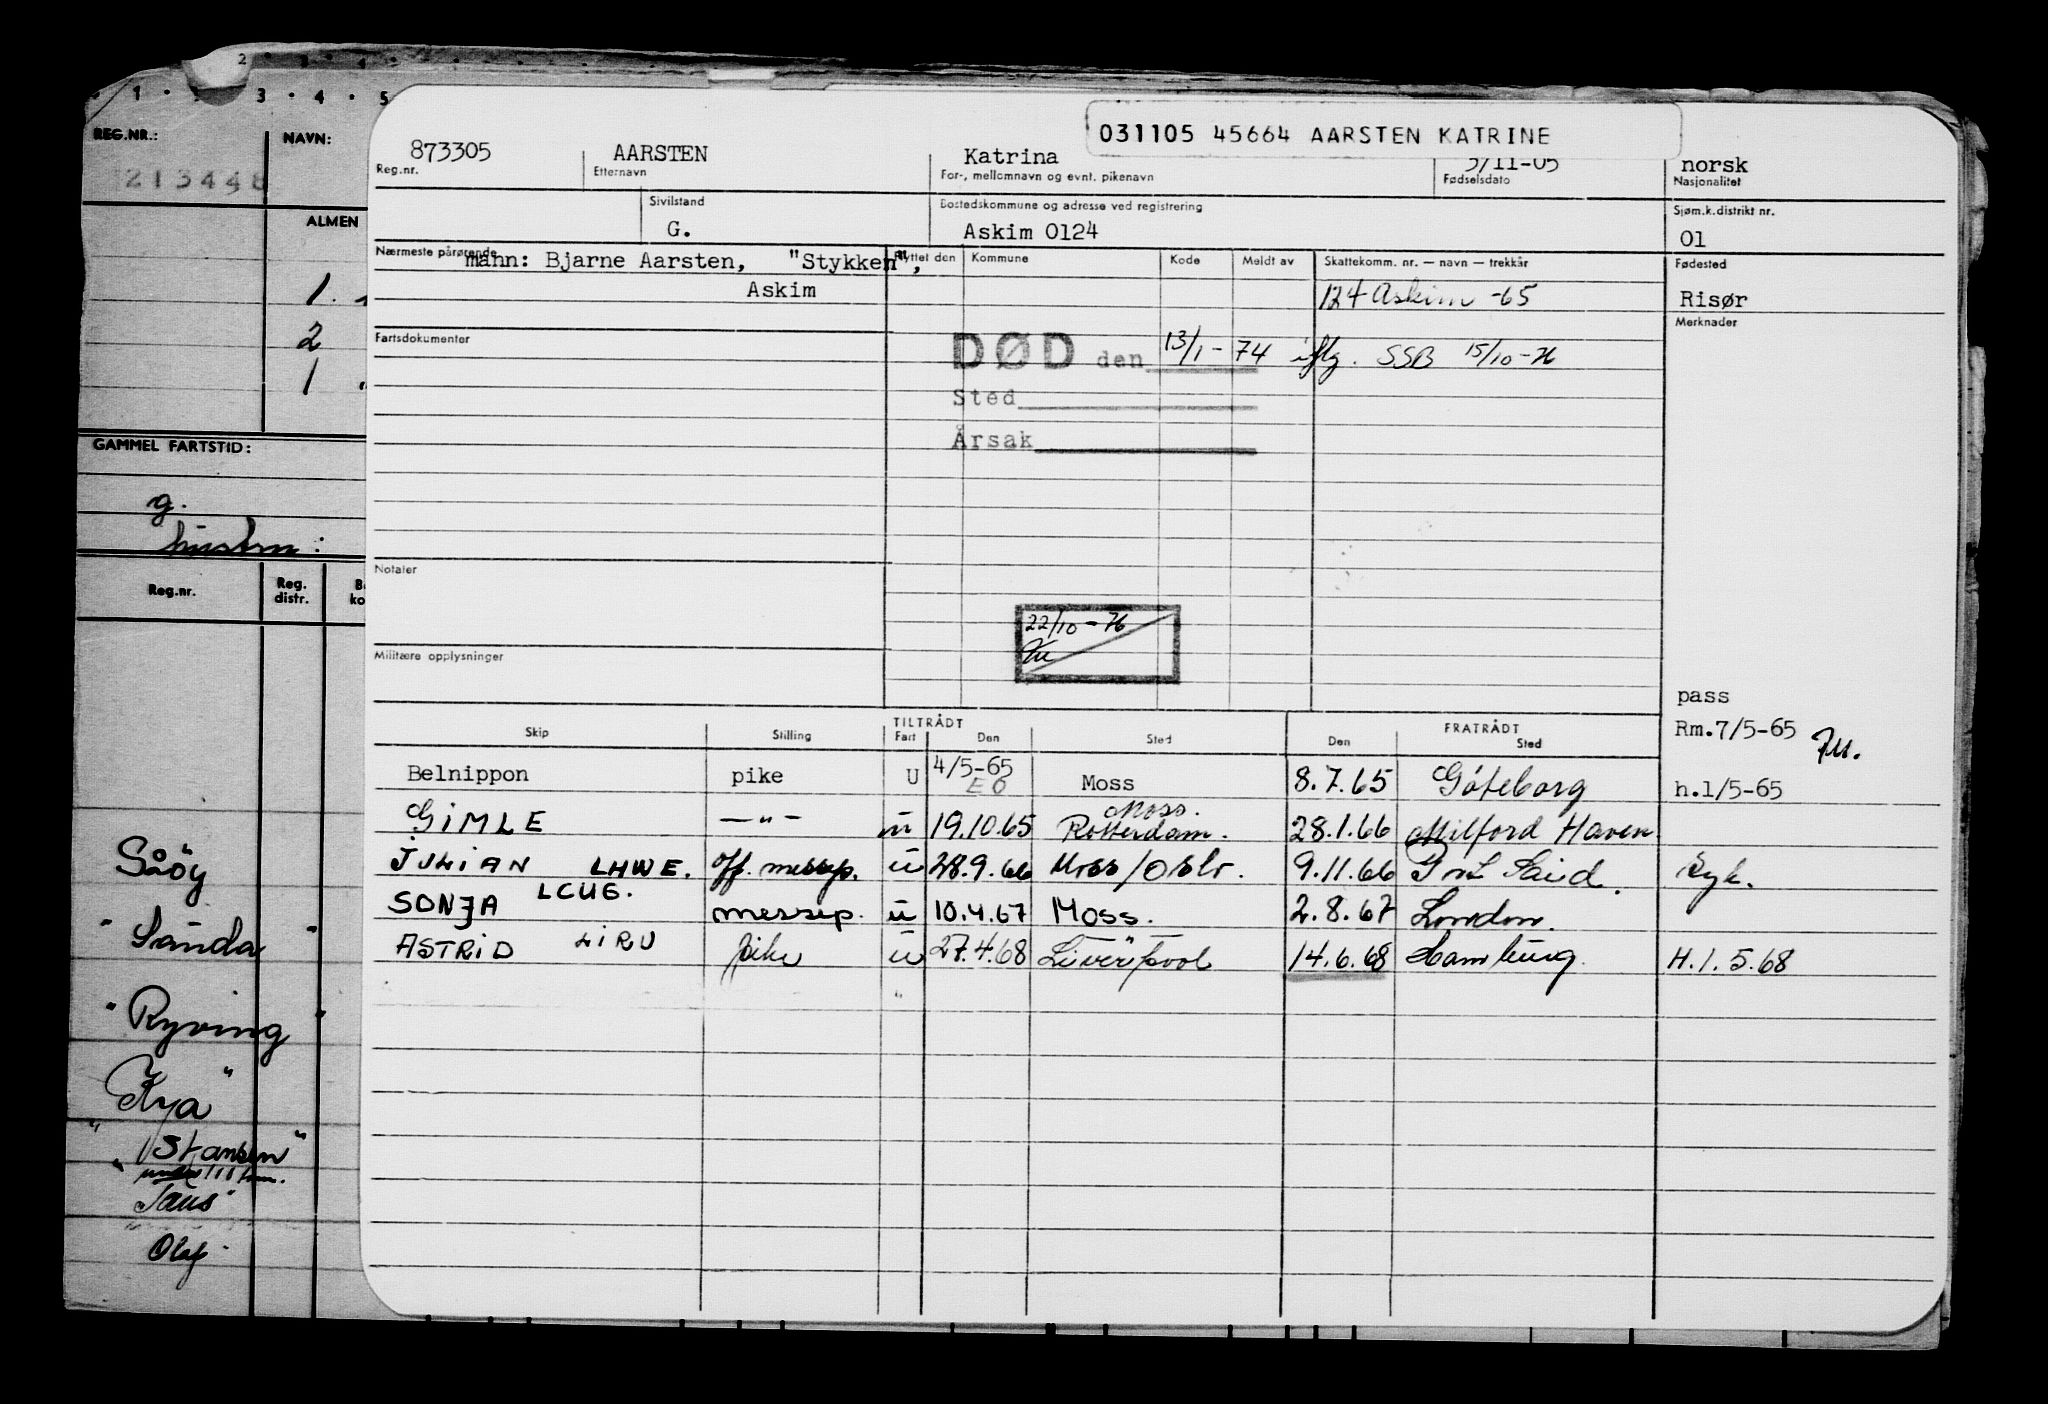 2 3 4
1 · 3 · 4 · 5
REG.NR.:
NAVN:
213448
ALMEN
1
2
1
GAMMEL FARTSTID:
g.
hustru:
Reg.nr.
Reg. distr.
Støy
"Sanda"
"Ryving"
"Rya"
"Stansen"
under
"Saus"
Olaf
031105 45664 AARSTEN KATRINE
873305 AARSTEN Katrina 3/11-05 norsk
Reg.nr. Etternavn For-, mellomnavn og evnt. pikenavn Fødselsdato Nasjonalitet
Sivilstand Bostedskommune og adresse ved registrering Sjøm.k.distrikt nr.
G. Askim 0124 01
Nærmeste pårørende Flyttet den Kommune Kode Meldt av Skattekomm. nr. — navn — trekkår Fødested
mann: Bjarne Aarsten, "Stykken",
Askim 124 Askim -65 Risør
Merknader
Fartsdokumenter
DØD den 13/1 - 74 iflg. SSB 15/10-76
Sted
Årsak
Notater
22/10 - 76
Militære opplysninger
pass
Rm.7/5-65
TILTRÅDT FRATRÅDT
Skip Stilling Fart Den Sted Den Sted
Belnippon pike U 4/5-65 EO Moss 8.7.65 Göteborg h.1/5-65
GIMLE —"— u 19.10.65 Moss. Rotterdam. 28.1.66 Milford Haven
JULIAN LHWE. off. messep. u 28.9.66 Moss/Oslo. 9.11.66 Port Said. Syk.
SONJA LCUG. messep. u 10.4.67 Moss. 2.8.67 London.
ASTRID LIRU pike u 27.4.68 Liverpool 14.6.68 Hamburg. H.1.5.68